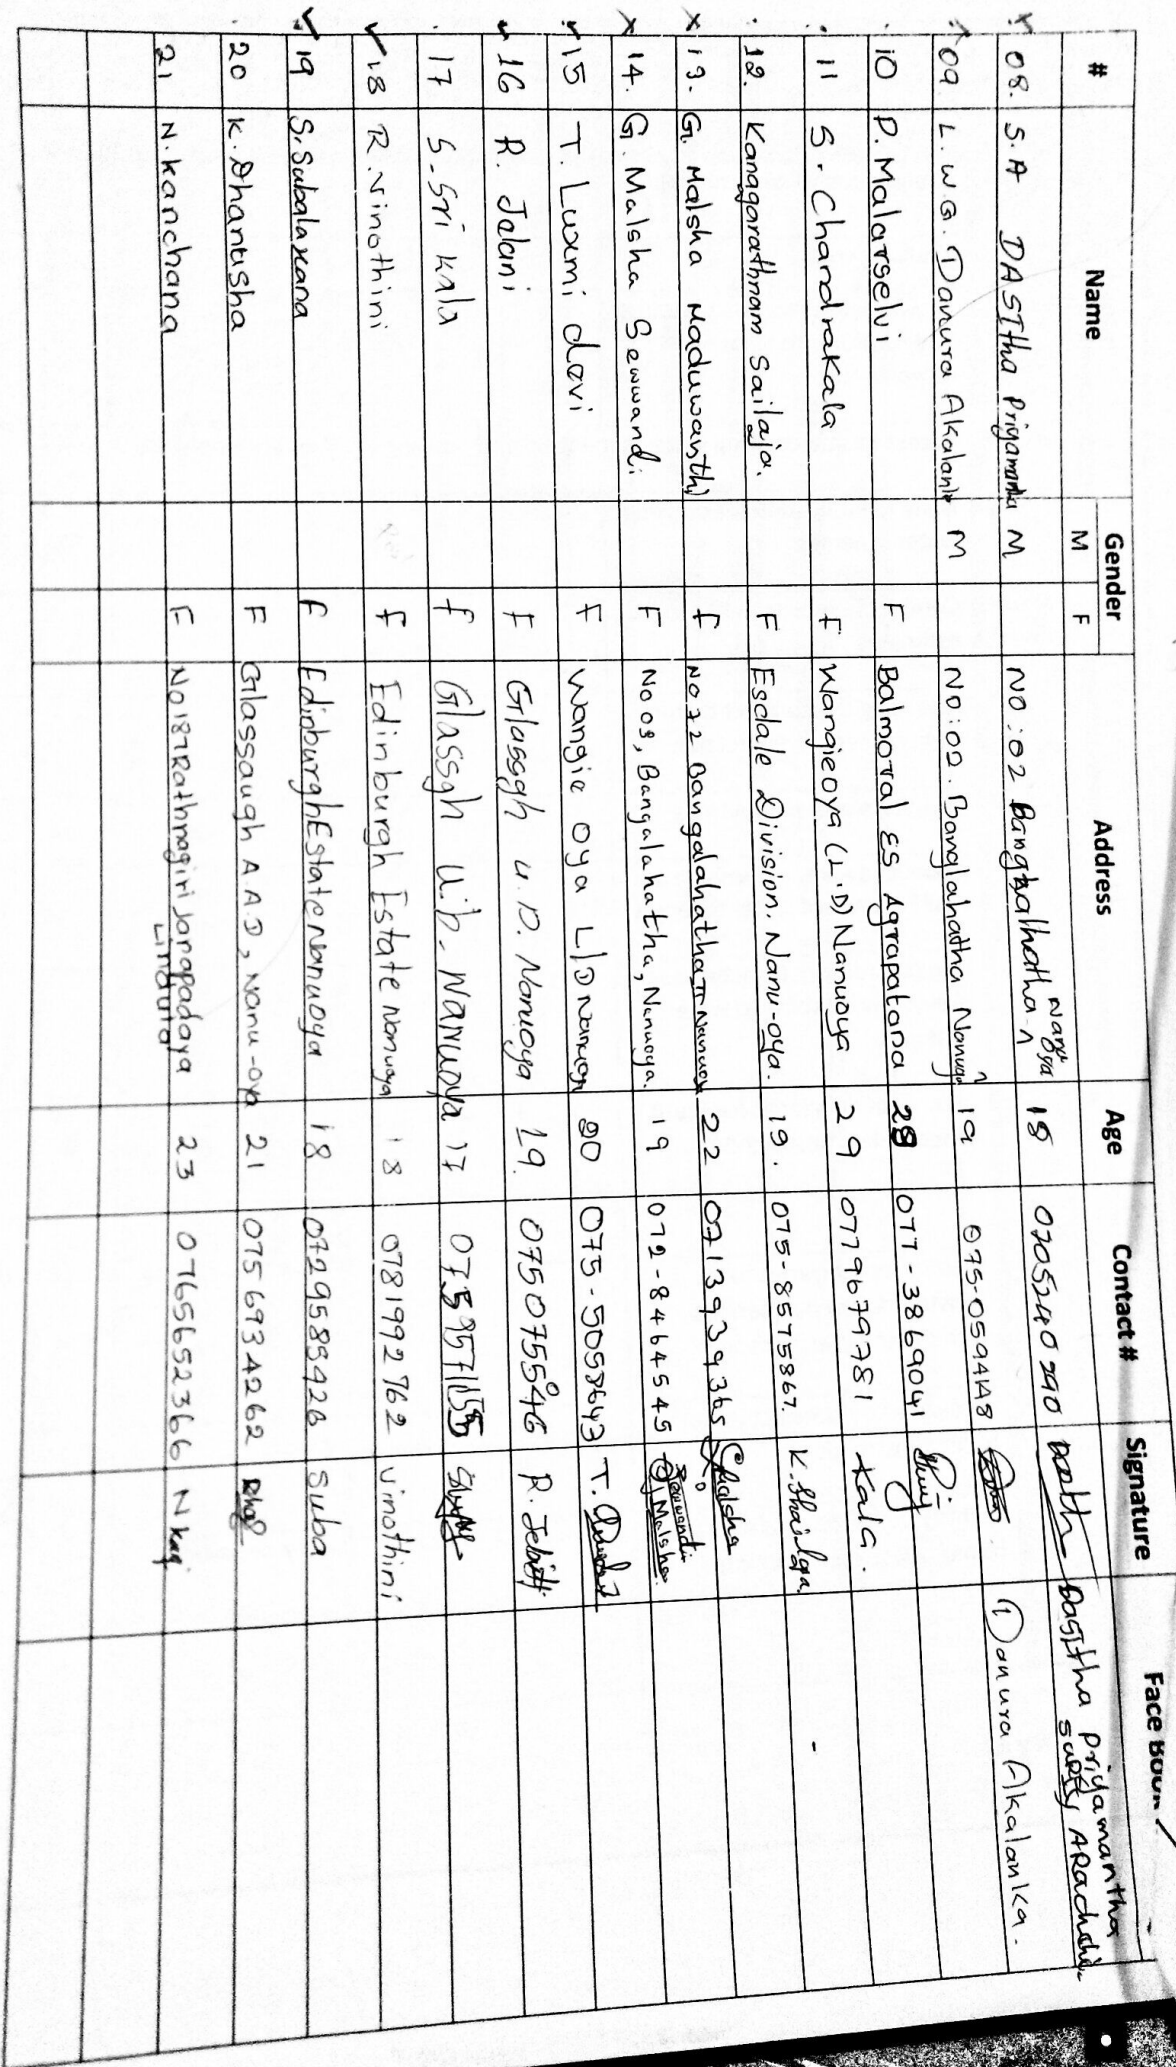 # Name Gender M F Address Age Contact # Signature Face Book
08. S.A DASItha Priyamantha M NO:02 Bangalhatha Nanuoya 18 Dasitha Priyamantha
09. L.W.G. Danura Akalanka M NO:02. Banglahatha Nanuoya 19 Danura Akalanka.
10 P. Malarselvi F Balmoral ES Agrapatana 077-3869041
11 S. Chandrakala F Wangieoya (L.D) Nanuoya 29 0779679781 Kala.
12. Kanagarathnam Sailaja. F Esdale Division. Nanu-oya. 19. 075-8575867. K. Shailaja
13. G. Malsha Maduwanthi F No 72 Bangalahatha Nanuoya 22 0713939365 Malsha
14. G. Malsha Sewwandi F No 03, Bangalahatha, Nanuoya. 19 072-8464545 Sewwandi Malsha.
15 T. Luxmi devi F Wangie Oya L/D Nanuoya 20 075-5058643 T.
16 R. Jalani F Glassgh U.D. Nanuoya 19. R.
17 S. Sri Kala f Glassgh U.D. Nanuoya 17
18 R. Vinothini f Edinburgh Estate Nanuoya 18 0781992762 Vinothini
19 S. Subalaxana f Edinburgh Estate Nanuoya 18 Suba
20 K. Dhanusha F Glassaugh A.A.D, Nanu-oya 21 0756934262
21 N. Kanchana F No 187 Rathnagiri Janapadaya Lindula 23 0765652366 N